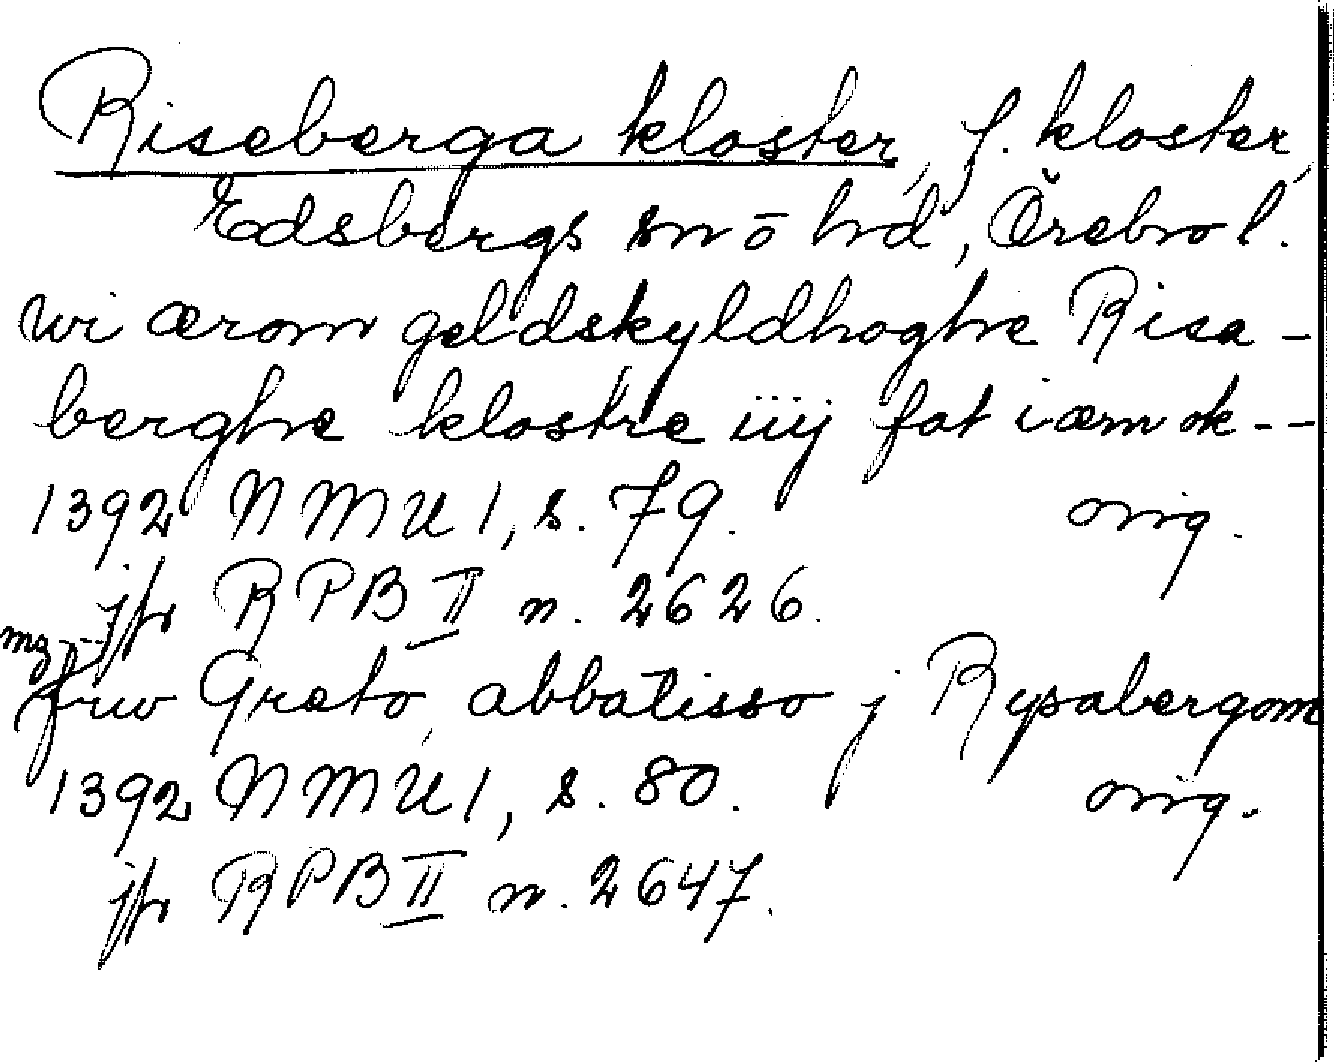 Riseberga kloster, f. kloster,
Edsbergs sn o hd, Örebro l.
wi ærom geldskyldhoghe Risa-
berghe klostre iiij fat iærn ok --
1392 NMU 1, s. 79. orig.
jfr RPB II n. 2626.
mz --
fruw Greto, abbatisso j Rysabergom
1392 NMU 1, s. 80. orig.
jfr RPB II n. 2647.